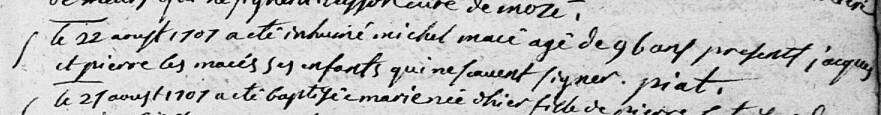 de mozé.
le 22 aoust 1707 a eté inhumé michel macé agé de 96 ans presents jacques
et pierre les macés ses enfants qui ne scavent signer. piat.
le 25 aoust 1707 a eté baptisée marie née d'hier fille de pierre